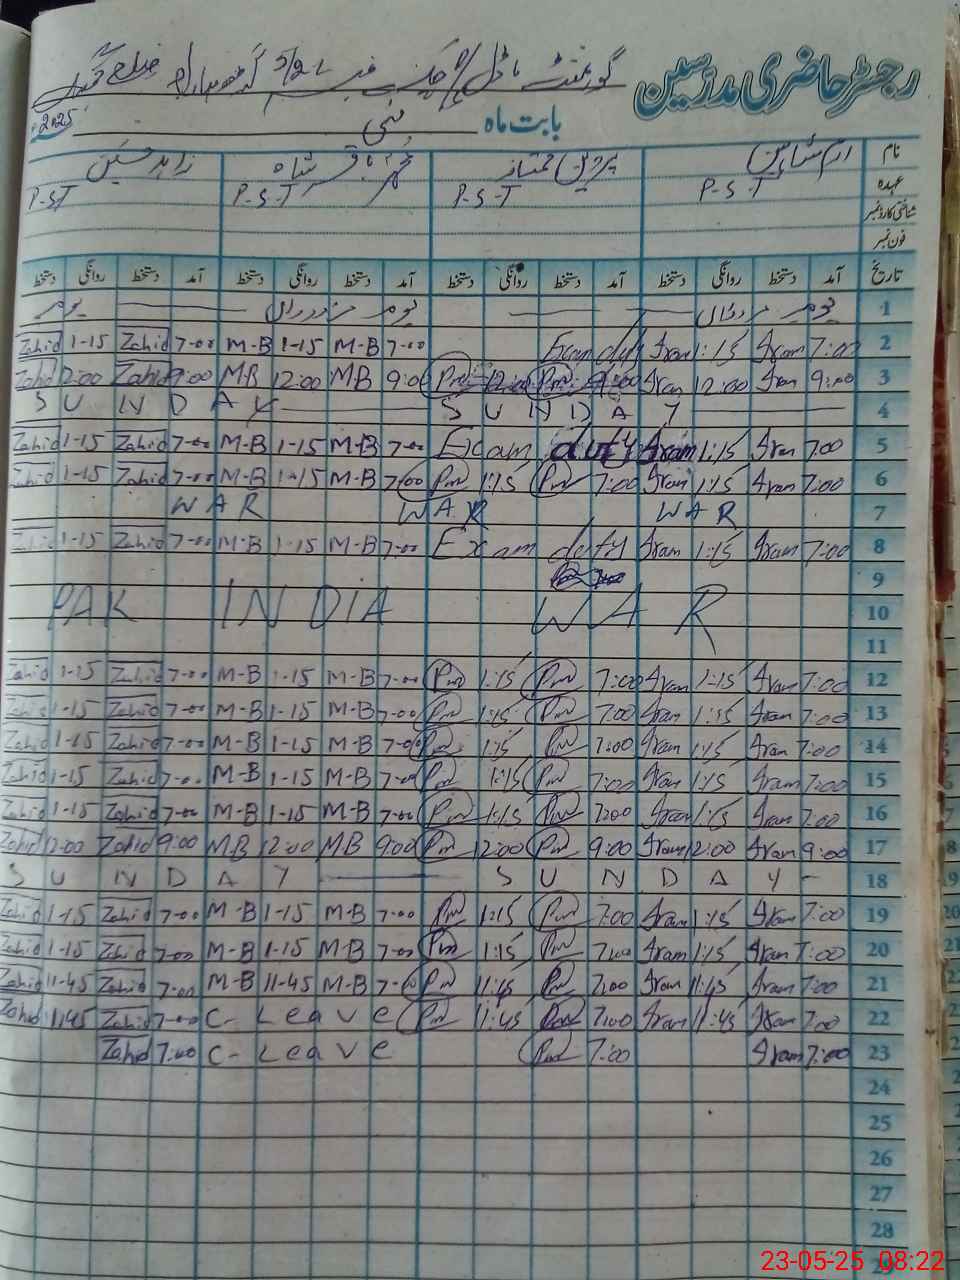 رجسٹر حاضری مدرسین
گورنمنٹ ماڈل 5/21
بابت ماہ مئی 2025
نام ارم شاہین پروین ممتاز محمد باقر شاہ زاہد حسین
عہدہ P-S-T P-S-T P-S-T P-ST
شناختی کارڈ نمبر
فون نمبر
تاریخ آمد دستخط روانگی دستخط آمد دستخط روانگی دستخط آمد دستخط روانگی دستخط آمد دستخط روانگی دستخط
یوم یوم مزدوراں یوم مزدوراں 1
Zahid 1-15 Zahid 7-00 M-B 1-15 M-B 7-00 Exam duty Aram 1:15 Aram 7:00 2
Zahid 12:00 Zahid 9:00 MB 12:00 MB 9:00 Pm 12:00 Pm 9:00 Aram 12:00 Aram 9:00 3
S U N D A Y S U N D A Y 4
Zahid 1-15 Zahid 7-00 M-B 1-15 M-B 7-00 Exam duty Aram 1:15 Aram 7:00 5
Zahid 1-15 Zahid 7-00 M-B 1-15 M-B 7:00 Pm 1:15 Pm 7:00 Aram 1:15 Aram 7:00 6
WAR WAR WAR 7
Zahid 1-15 Zahid 7-00 M-B 1-15 M-B 7-00 Exam duty Aram 1:15 Aram 7:00 8
9
PAK INDIA WAR 10
11
Zahid 1-15 Zahid 7-00 M-B 1-15 M-B 7-00 Pm 1:15 Pm 7:00 Aram 1:15 Aram 7:00 12
Zahid 1-15 Zahid 7-00 M-B 1-15 M-B 7-00 Pm 1:15 Pm 7:00 Aram 1:15 Aram 7:00 13
Zahid 1-15 Zahid 7-00 M-B 1-15 M-B 7-00 Pm 1:15 Pm 7:00 Aram 1:15 Aram 7:00 14
Zahid 1-15 Zahid 7-00 M-B 1-15 M-B 7-00 Pm 1:15 Pm 7:00 Aram 1:15 Aram 7:00 15
Zahid 1-15 Zahid 7-00 M-B 1-15 M-B 7-00 Pm 1:15 Pm 7:00 Aram 1:15 Aram 7:00 16
Zahid 12-00 Zahid 9:00 MB 12:00 MB 9:00 Pm 12:00 Pm 9:00 Aram 12:00 Aram 9:00 17
S U N D A Y S U N D A Y 18
Zahid 1-15 Zahid 7-00 M-B 1-15 M-B 7-00 Pm 1:15 Pm 7:00 Aram 1:15 Aram 7:00 19
Zahid 1-15 Zahid 7-00 M-B 1-15 M-B 7-00 Pm 1:15 Pm 7:00 Aram 1:15 Aram 7:00 20
Zahid 11-45 Zahid 7-00 M-B 11-45 M-B 7-00 Pm 11:45 Pm 7:00 Aram 11:45 Aram 7:00 21
Zahid 11:45 Zahid 7-00 C- Leave Pm 11:45 Pm 7:00 Aram 11:45 Aram 7:00 22
Zahid 7:00 C- Leave Pm 7:00 Aram 7:00 23
24
25
26
27
28
23-05-25 08:22